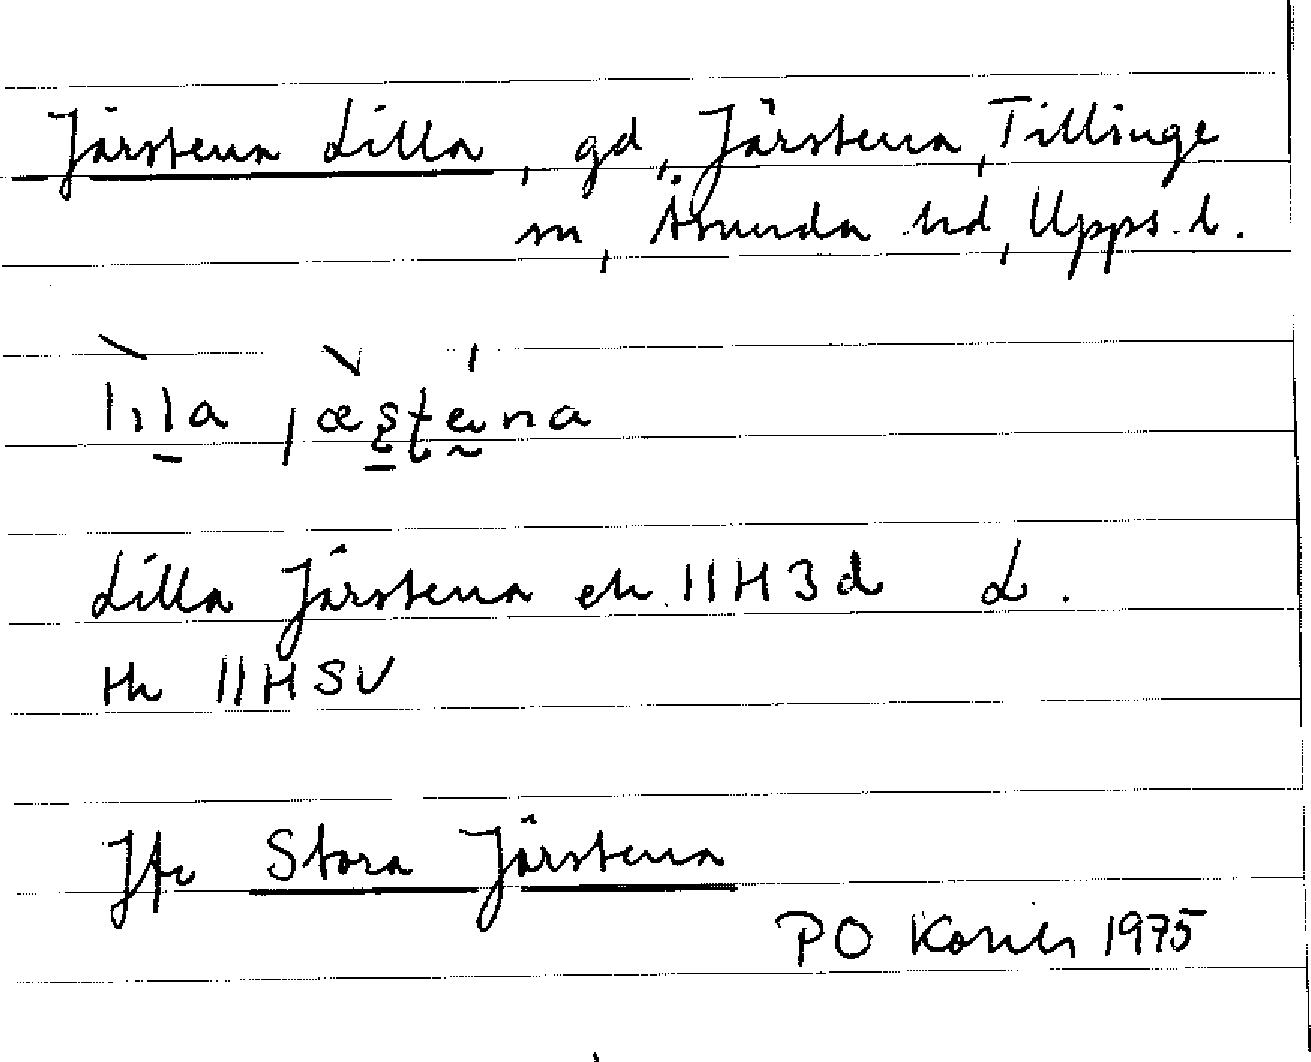 Järstena Lilla, gd, Järstena, Tillinge
sn, Åsunda hd, Upps. l.
lɪla jæʂʈeɪna
Lilla Järstena ek. 11H3d L.
Hk 11HSV
Jfr Stora Järstena
PO 1975